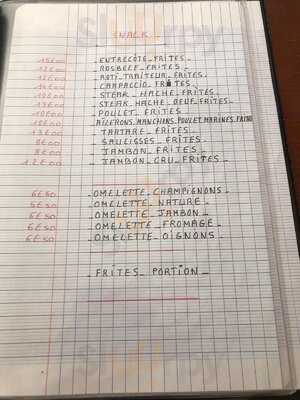 SNACK
15€00 - ENTRECÔTE - FRITES -
12€00 - ROSBEEF - FRITES -
12€00 - ROTI - TRAITEUR - FRITES -
14€00 - CARPACCIO - FRITES
10€00 - STEAK - HACHE - FRITES -
13€00 - STEAK - HACHE - OEUF - FRITES -
10€00 - POULET - FRITES -
12€00 - AILERONS, MANCHONS, POULET, MARINES, FRITES
13€00 - TARTARE - FRITES -
8€00 - SAUCISSES - FRITES -
8€00 - JAMBON - FRITES -
12€00 - JAMBON - CRU - FRITES -
6€50 - OMELETTE - CHAMPIGNONS -
5€50 - OMELETTE - NATURE -
6€50 - OMELETTE - JAMBON -
6€50 - OMELETTE - FROMAGE -
6€50 - OMELETTE - OIGNONS -
- FRITES - PORTION -